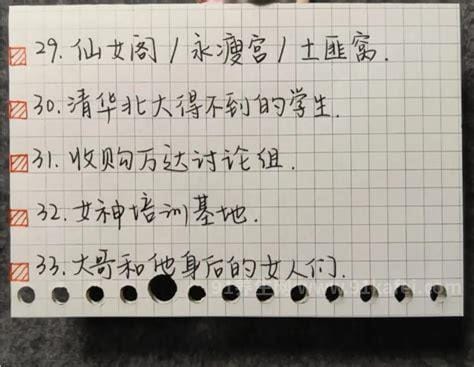 29. 仙女阁 / 永瘦宫 / 土匪窝.
30. 清华北大得不到的学生.
31. 收购万达讨论组.
32. 女神培训基地.
33. 大哥和他身后的女人们.